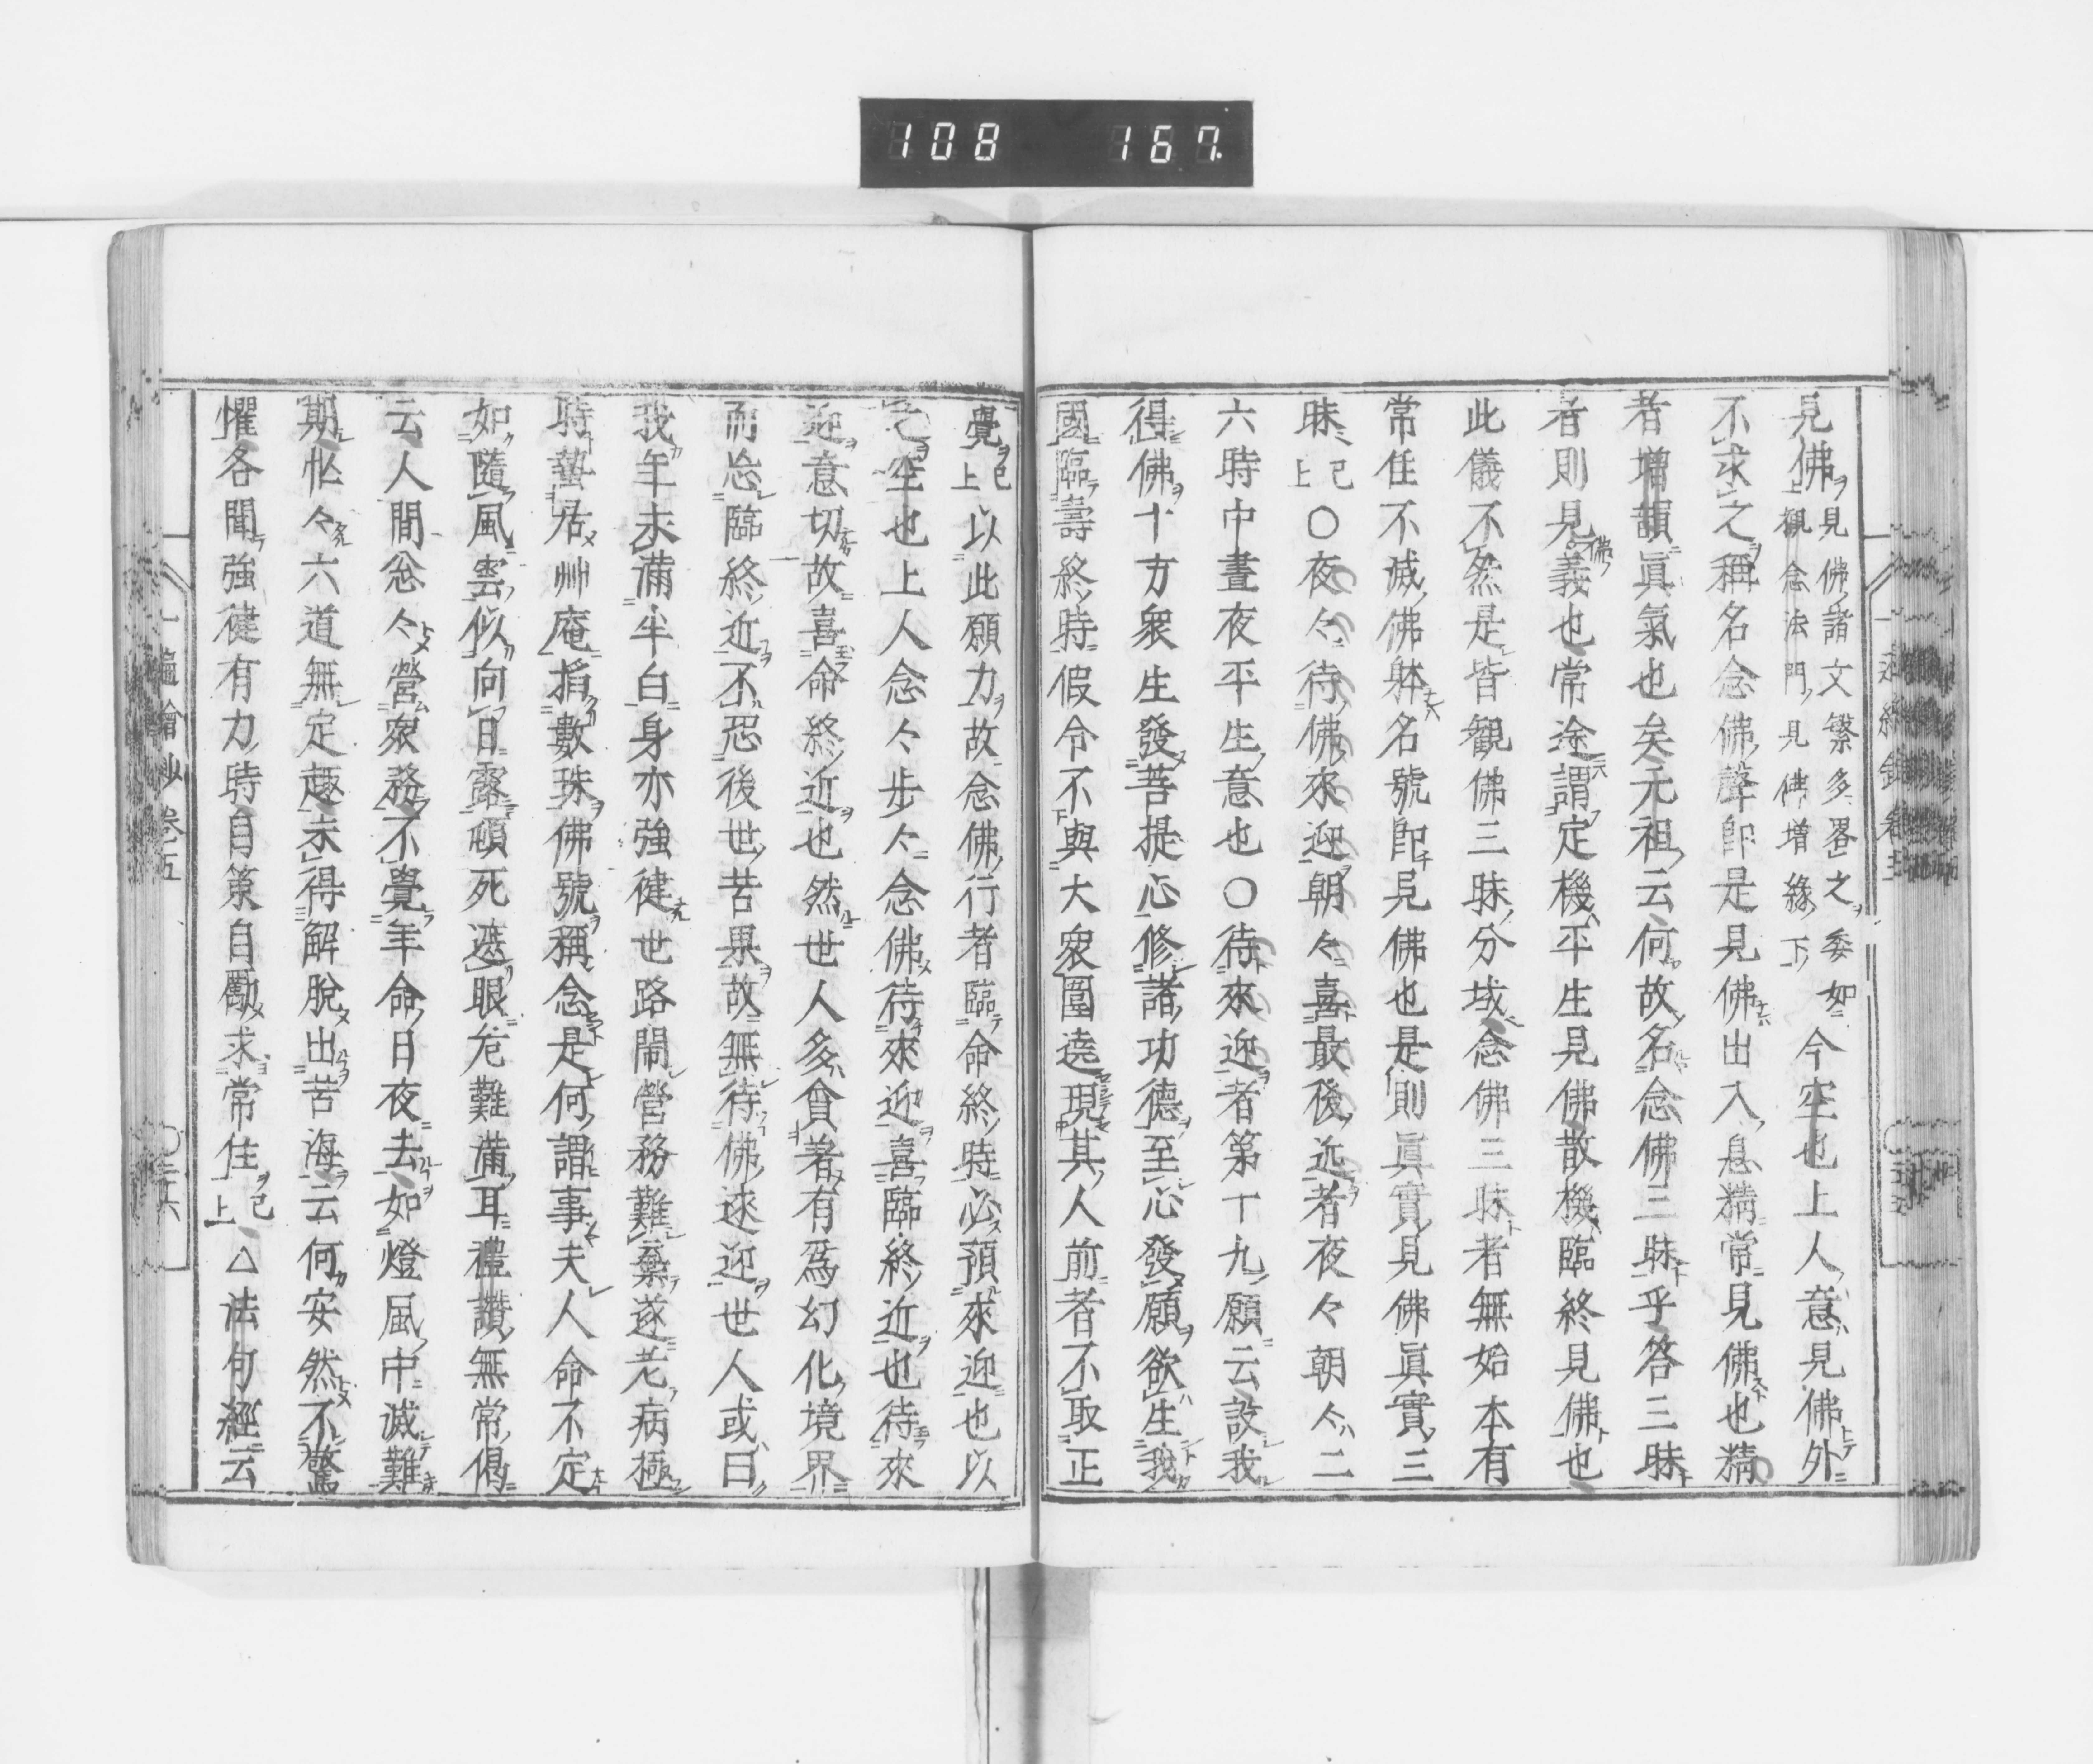 108 167
見佛見佛諸文繁多畧之委如上觀念法門見佛增緣下今空也上人意見佛外
不求之稱名念佛聲即是見佛出入息精常見佛也精
者增韻眞氣也矣元祖云何故名念佛三昧乎答三昧
者則見佛義也常途謂定機平生見佛散機臨終見佛也
此儀不然是皆観佛三昧分域念佛三昧者無始本有
常住不滅佛躰名號即見佛也是則眞實見佛眞實三
昧已上〇夜々待佛來迎朝々喜最後近者夜々朝々二
六時中晝夜平生意也〇待來迎者第十九願云設我
得佛十方衆生發菩提心修諸功德至心發願欲生我
國臨壽終時假令不與大衆圍遶現其人前者不取正
覺已上以此願力故念佛行者臨命終時必預來迎也以
之空也上人念々步々念佛待來迎喜臨終近也待來
迎意切故喜命終近也然世人多貪著有爲幻化境界
而怠臨終近不恐後世苦果故無待佛來迎世人或曰
我年未滿半白身亦強健世路閙營務難棄遂老病極
時蟄居艸庵捐數珠佛號稱念是何謂事夫人命不定
如隨風雲似向日露頓死遮眼危難滿耳禮讚無常偈
云人間忩々營衆務不覺年命日夜去如燈風中滅難
期忙々六道無定趣未得解脫出苦海云何安然不驚
懼各聞強健有力時自策自勵求常住已上△法句經云
卷五